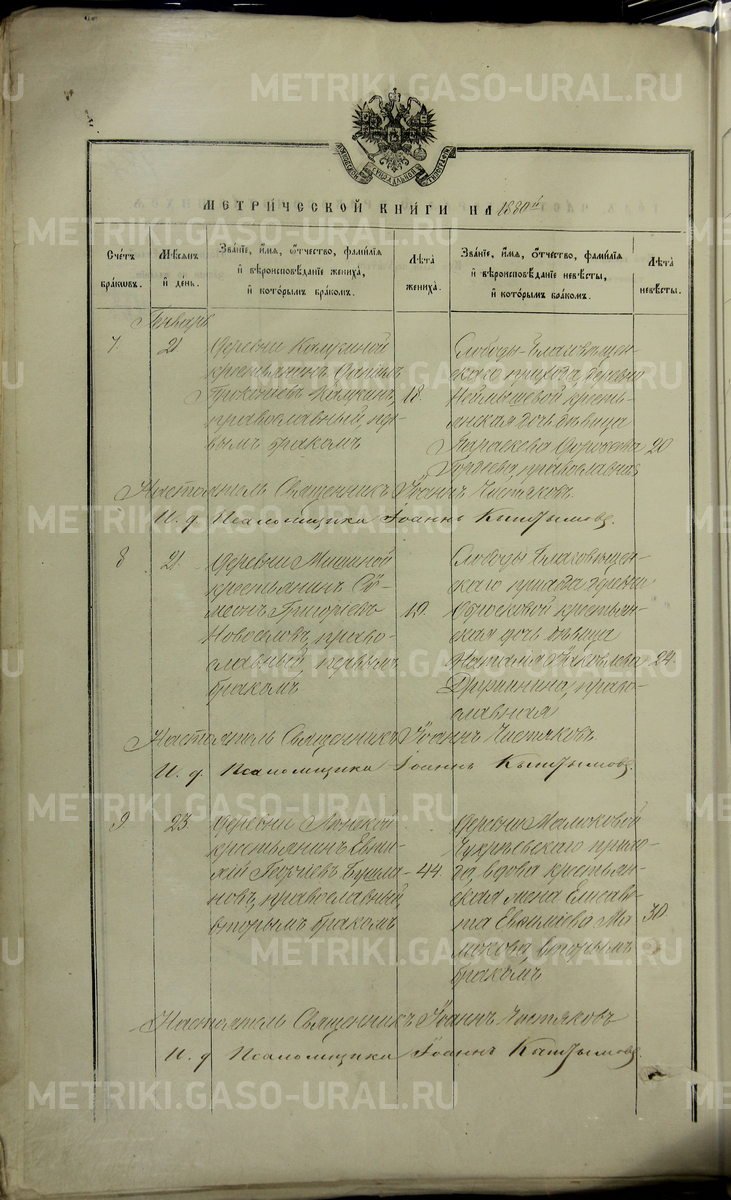 METRIKI.GASO-URAL.RU
МЕТРИ́ЧЕСКОЙ КНИ́ГИ НА 1880й
Сче́тъ бра́кшвъ.
Мѣ́сяцъ и҆ де́нь.
Зва́нїе, и҆́мѧ, ѻ҆́тчество, фами́лїѧ и҆ вѣроисповѣ́данїе жениха̀, и҆ кото́рымъ бра́комъ.
Лѣ́та жениха̀.
Зва́нїе, и҆́мѧ, ѻ҆́тчество, фами́лїѧ и҆ вѣроисповѣ́данїе невѣ́сты, и҆ кото́рымъ бра́комъ.
Лѣ́та невѣ́сты.
Генварь
7. 21
Деревни
крестьянинъ
православный, пер-
вымъ бракомъ
18.
Слободы Благовѣщен-
скаго прихода, деревни
кресть-
янская дочь дѣвица
Параскева
православная
20
Настоятель Священникъ Іоаннъ Чистяковъ
И. д. Псаломщика Іоаннъ Кыштымовъ.
8 21.
Деревни Мишиной
крестьянинъ Си-
меонъ Григорьевъ
Новоселовъ, право-
славный, первымъ
бракомъ
19.
Слободы Благовѣщен-
скаго прихода деревни
крестьян-
ская дочь дѣвица
Наталія Яковлева
Дружинина, право-
славная
24.
Настоятель Священникъ Іоаннъ Чистяковъ
И. д. Псаломщика Іоаннъ Кыштымовъ.
9 23.
Деревни
крестьянинъ Евѳи-
мій Георгіевъ Бушла-
новъ, православный,
вторымъ бракомъ
44.
Деревни Малковой
прихо-
да, вдова крестьян-
ская жена Елисаве-
та Евѳиміева Ма-
лькова, вторымъ
бракомъ
30
Настоятель Священникъ Іоаннъ Чистяковъ
И. д. Псаломщика Іоаннъ Кыштымовъ.